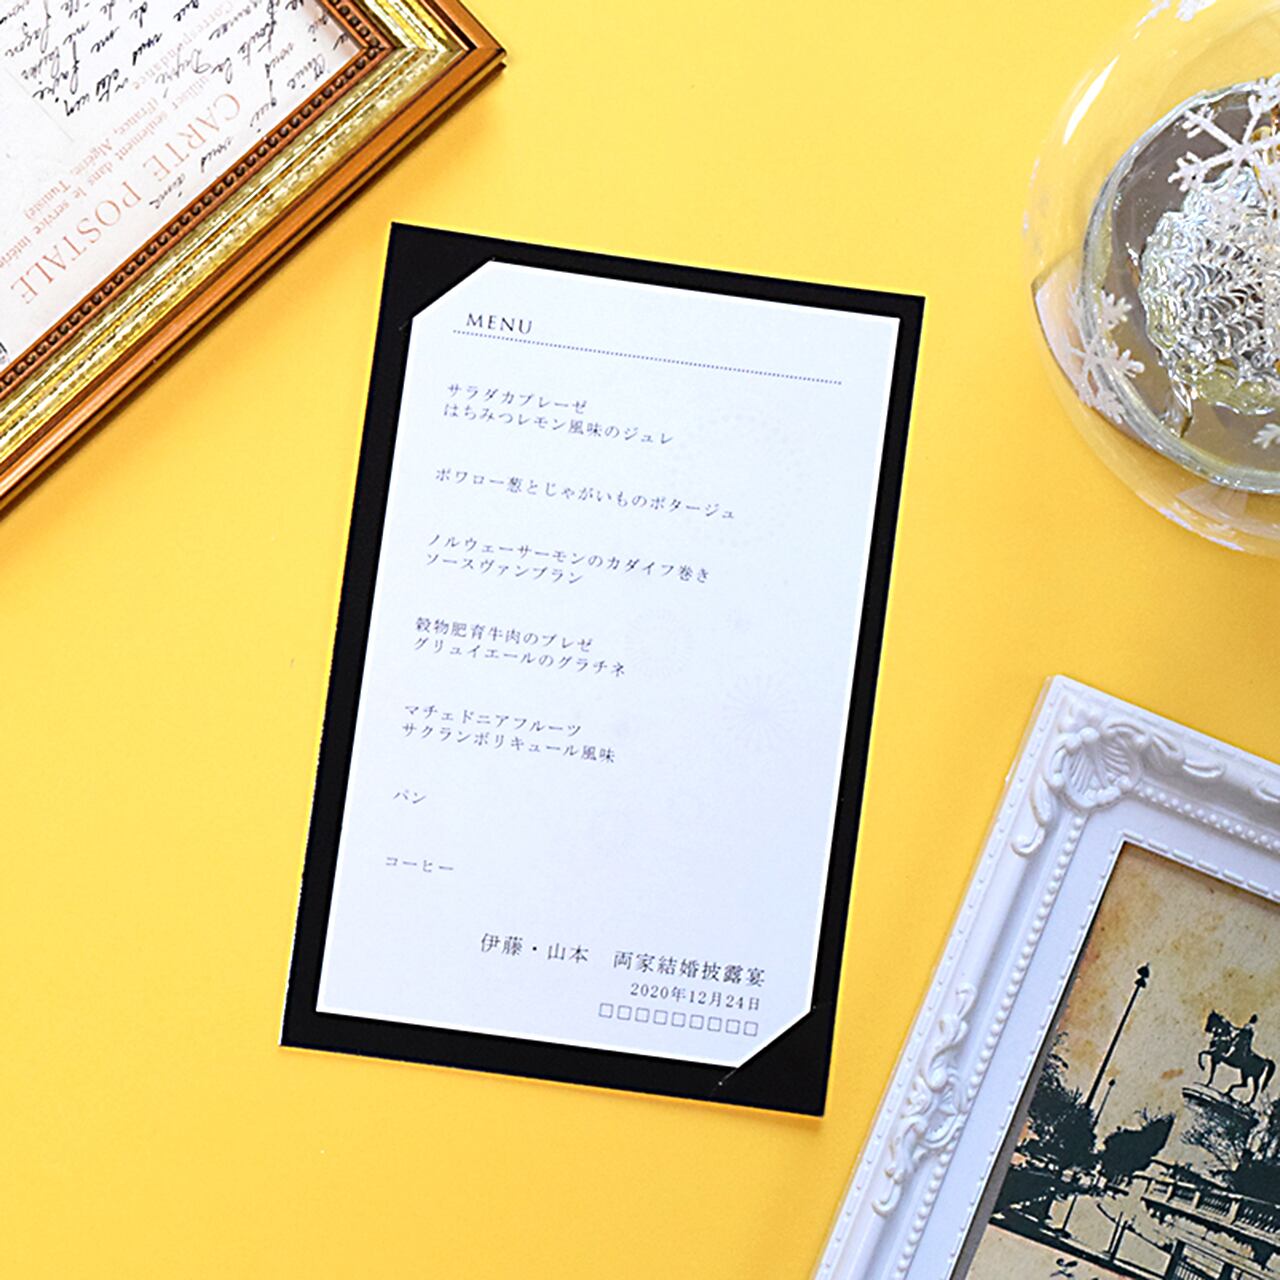 MENU
サラダカプレーゼ
はちみつレモン風味のジュレ
ポワロー葱とじゃがいものポタージュ
ノルウェーサーモンのカダイフ巻き
ソースヴァンブラン
穀物肥育牛肉のブレゼ
グリュイエールのグラチネ
マチェドニアフルーツ
サクランボリキュール風味
パン
コーヒー
伊藤・山本　両家結婚披露宴
2020年12月24日
□□□□□□□□□
CARTE POSTALE
Correspondance
seulement dans le service intérieur
(France, Algérie, Tunisie)